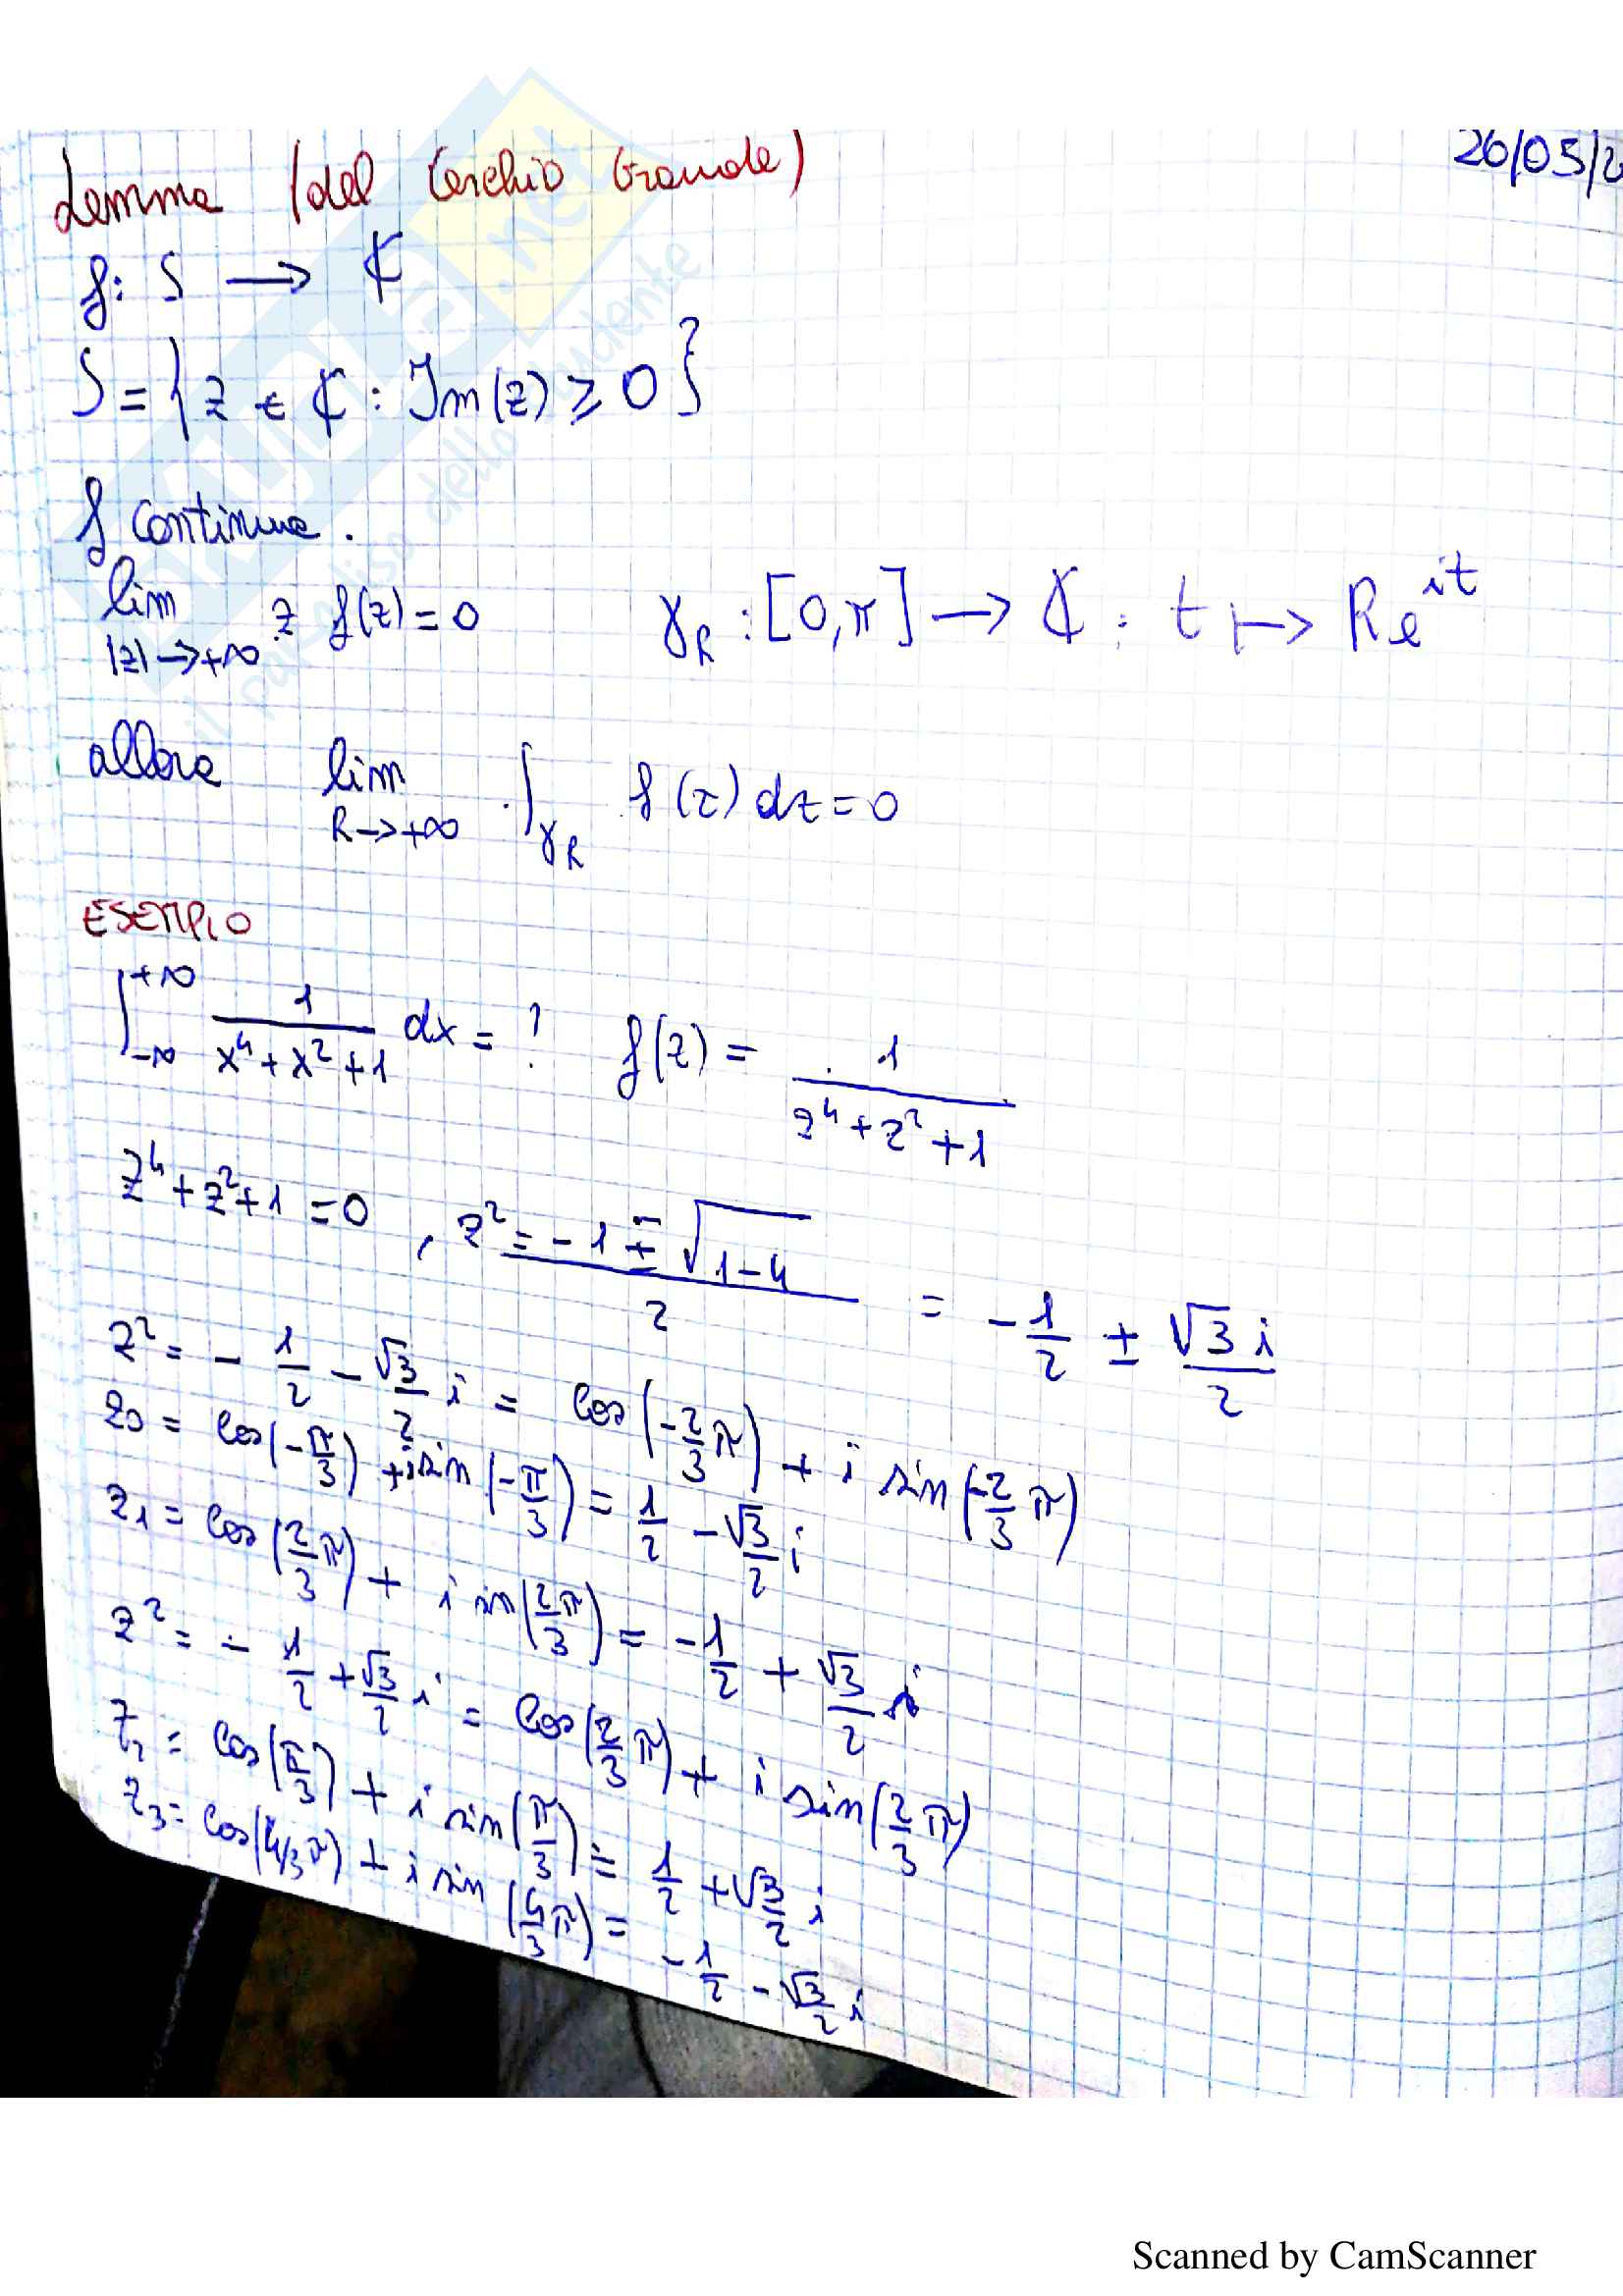 26/05/2
Lemma (del Cerchio Grande)
f: S → ℂ
S = {z ∈ ℂ : Im(z) ≥ 0}
f continua.
lim |z|→+∞ z f(z) = 0   γ_R : [0,π] → ℂ : t ↦ Re^{it}
allora lim R→+∞ ∫_{γ_R} f(z) dz = 0
ESEMPIO
∫_{-∞}^{+∞} 1/(x⁴+x²+1) dx = ?   f(z) = 1/(z⁴+z²+1)
z⁴+z²+1 = 0 , z² = (-1 ± √(1-4))/2 = -1/2 ± √3 i/2
z² = -1/2 - √3/2 i = cos(-2/3 π) + i sin(-2/3 π)
z₀ = cos(-π/3) + i sin(-π/3) = 1/2 - √3/2 i
z₁ = cos(2/3 π) + i sin(2/3 π) = -1/2 + √3/2 i
z² = -1/2 + √3/2 i = cos(2/3 π) + i sin(2/3 π)
z₂ = cos(π/3) + i sin(π/3) = 1/2 + √3/2 i
z₃ = cos(4/3 π) + i sin(4/3 π) = -1/2 - √3/2 i
.net
il paradiso dello studente
Scanned by CamScanner